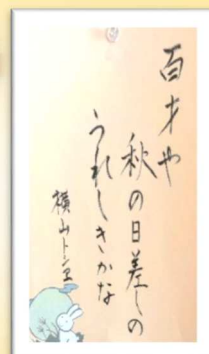 百才や
秋の日差しの
うれしきかな
横山トシヱ